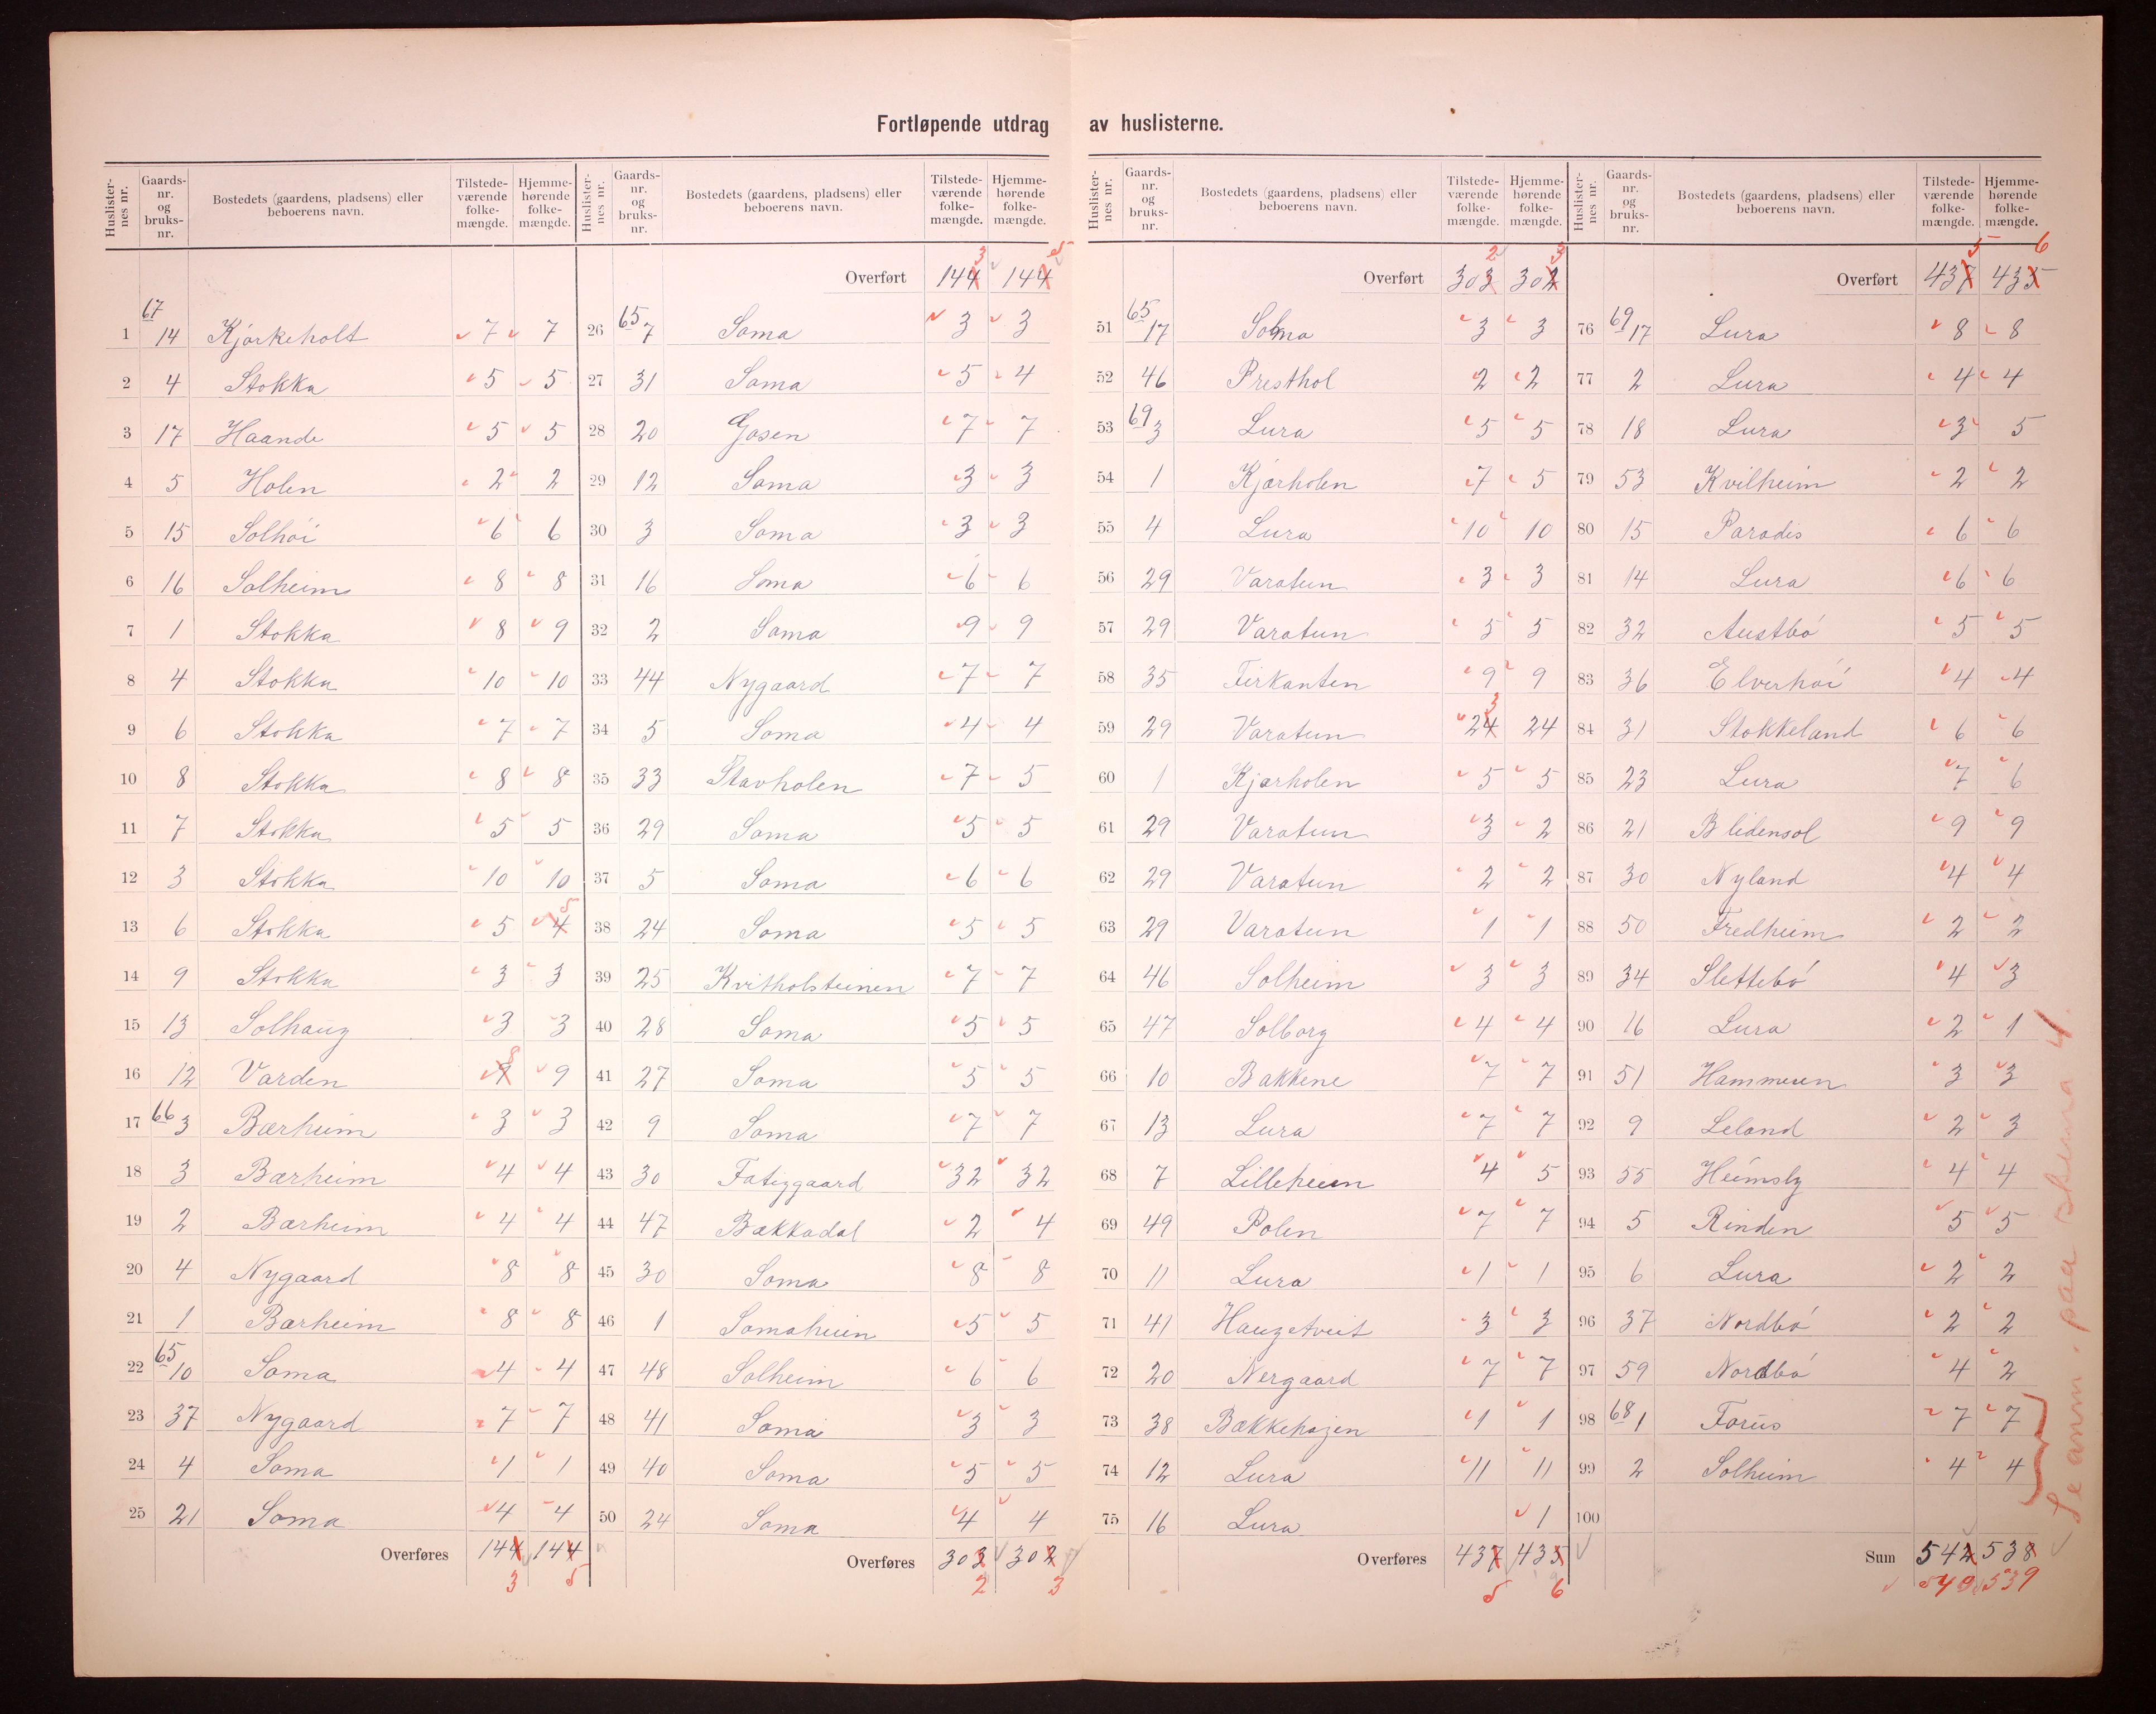 Fortløpende utdrag av huslisterne.
Huslister-nes nr. Gaards-nr. og bruks-nr. Bostedets (gaardens, pladsens) eller beboerens navn. Tilstede-værende folke-mængde. Hjemme-hørende folke-mængde.
1 67 14 Kjørkeholt 7 7
2 4 Stokka 5 5
3 17 Haande 5 5
4 5 Holen 2 2
5 15 Solhöi 6 6
6 16 Solheim 8 8
7 1 Stokka 8 9
8 4 Stokka 10 10
9 6 Stokka 7 7
10 8 Stokka 8 8
11 7 Stokka 5 5
12 3 Stokka 10 10
13 6 Stokka 5 4 5
14 9 Stokka 3 3
15 13 Solhaug 3 3
16 12 Varden 9 8 9
17 66 3 Bærheim 3 3
18 3 Bærheim 4 4
19 2 Bærheim 4 4
20 4 Nygaard 8 8
21 1 Bærheim 8 8
22 65 10 Soma 4 4
23 37 Nygaard 7 7
24 4 Soma 1 1
25 21 Soma 4 4
Overføres 144 144
3 5
Huslister-nes nr. Gaards-nr. og bruks-nr. Bostedets (gaardens, pladsens) eller beboerens navn. Tilstede-værende folke-mængde. Hjemme-hørende folke-mængde.
3 5
Overført 144 144
26 65 7 Soma 3 3
27 31 Soma 5 4
28 20 Gosen 7 7
29 12 Soma 3 3
30 3 Soma 3 3
31 16 Soma 6 6
32 2 Soma 9 9
33 44 Nygaard 7 7
34 5 Soma 4 4
35 33 Stavholen 7 5
36 29 Soma 5 5
37 5 Soma 6 6
38 24 Soma 5 5
39 25 Kvitholsteinen 7 7
40 28 Soma 5 5
41 27 Soma 5 5
42 9 Soma 7 7
43 30 Fatiggaard 32 32
44 47 Bækkadal 2 4
45 30 Soma 8 8
46 1 Somaheim 5 5
47 48 Solheim 6 6
48 41 Soma 3 3
49 40 Soma 5 5
50 24 Soma 4 4
Overføres 303 302
2 3
Huslister-nes nr. Gaards-nr. og bruks-nr. Bostedets (gaardens, pladsens) eller beboerens navn. Tilstede-værende folke-mængde. Hjemme-hørende folke-mængde.
2 3
Overført 303 302
51 65 17 Soma 3 3
52 46 Presthol 2 2
53 69 3 Lura 5 5
54 1 Kjærholen 7 5
55 4 Lura 10 10
56 29 Varatun 3 3
57 29 Varatun 5 5
58 35 Firkanten 9 9
59 29 Varatun 24 3 24
60 1 Kjærholen 5 5
61 29 Varatun 3 2
62 29 Varatun 2 2
63 29 Varatun 1 1
64 46 Solheim 3 3
65 47 Solborg 4 4
66 10 Bakkene 7 7
67 13 Lura 7 7
68 7 Lilleheim 4 5
69 49 Polen 7 7
70 11 Lura 1 1
71 41 Haugetveit 3 3
72 20 Nergaard 7 7
73 38 Bækkehagen 1 1
74 12 Lura 11 11
75 16 Lura 1
Overføres 437 435
5 6
Huslister-nes nr. Gaards-nr. og bruks-nr. Bostedets (gaardens, pladsens) eller beboerens navn. Tilstede-værende folke-mængde. Hjemme-hørende folke-mængde.
5 6
Overført 437 435
76 69 17 Lura 8 8
77 2 Lura 4 4
78 18 Lura 3 5
79 53 Kvilheim 2 2
80 15 Paradis 6 6
81 14 Lura 6 6
82 32 Austbö 5 5
83 36 Elverhöi 4 4
84 31 Stokkeland 6 6
85 23 Lura 7 6
86 21 Blidensol 9 9
87 30 Nyland 4 4
88 50 Fredheim 2 2
89 34 Slettebö 4 3
90 16 Lura 2 1
91 51 Hammeren 3 3
92 9 Leland 2 3
93 55 Heimsly 4 4
94 5 Rinden 5 5
95 6 Lura 2 2
96 37 Nordbö 2 2
97 59 Nordbö 4 2
98 68 1 Forus 7 7
99 2 Solheim 4 4
100
Sum 542 538
540 539
Se anm. paa skema 4.